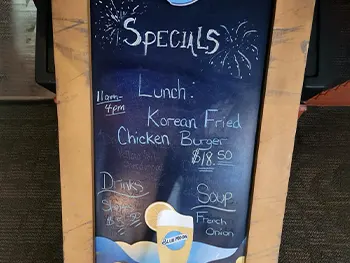 SPECIALS
Lunch:
11am-
4pm
Korean Fried
Chicken Burger
$18.50
Drinks
Soup
French
Onion
BLUE MOON